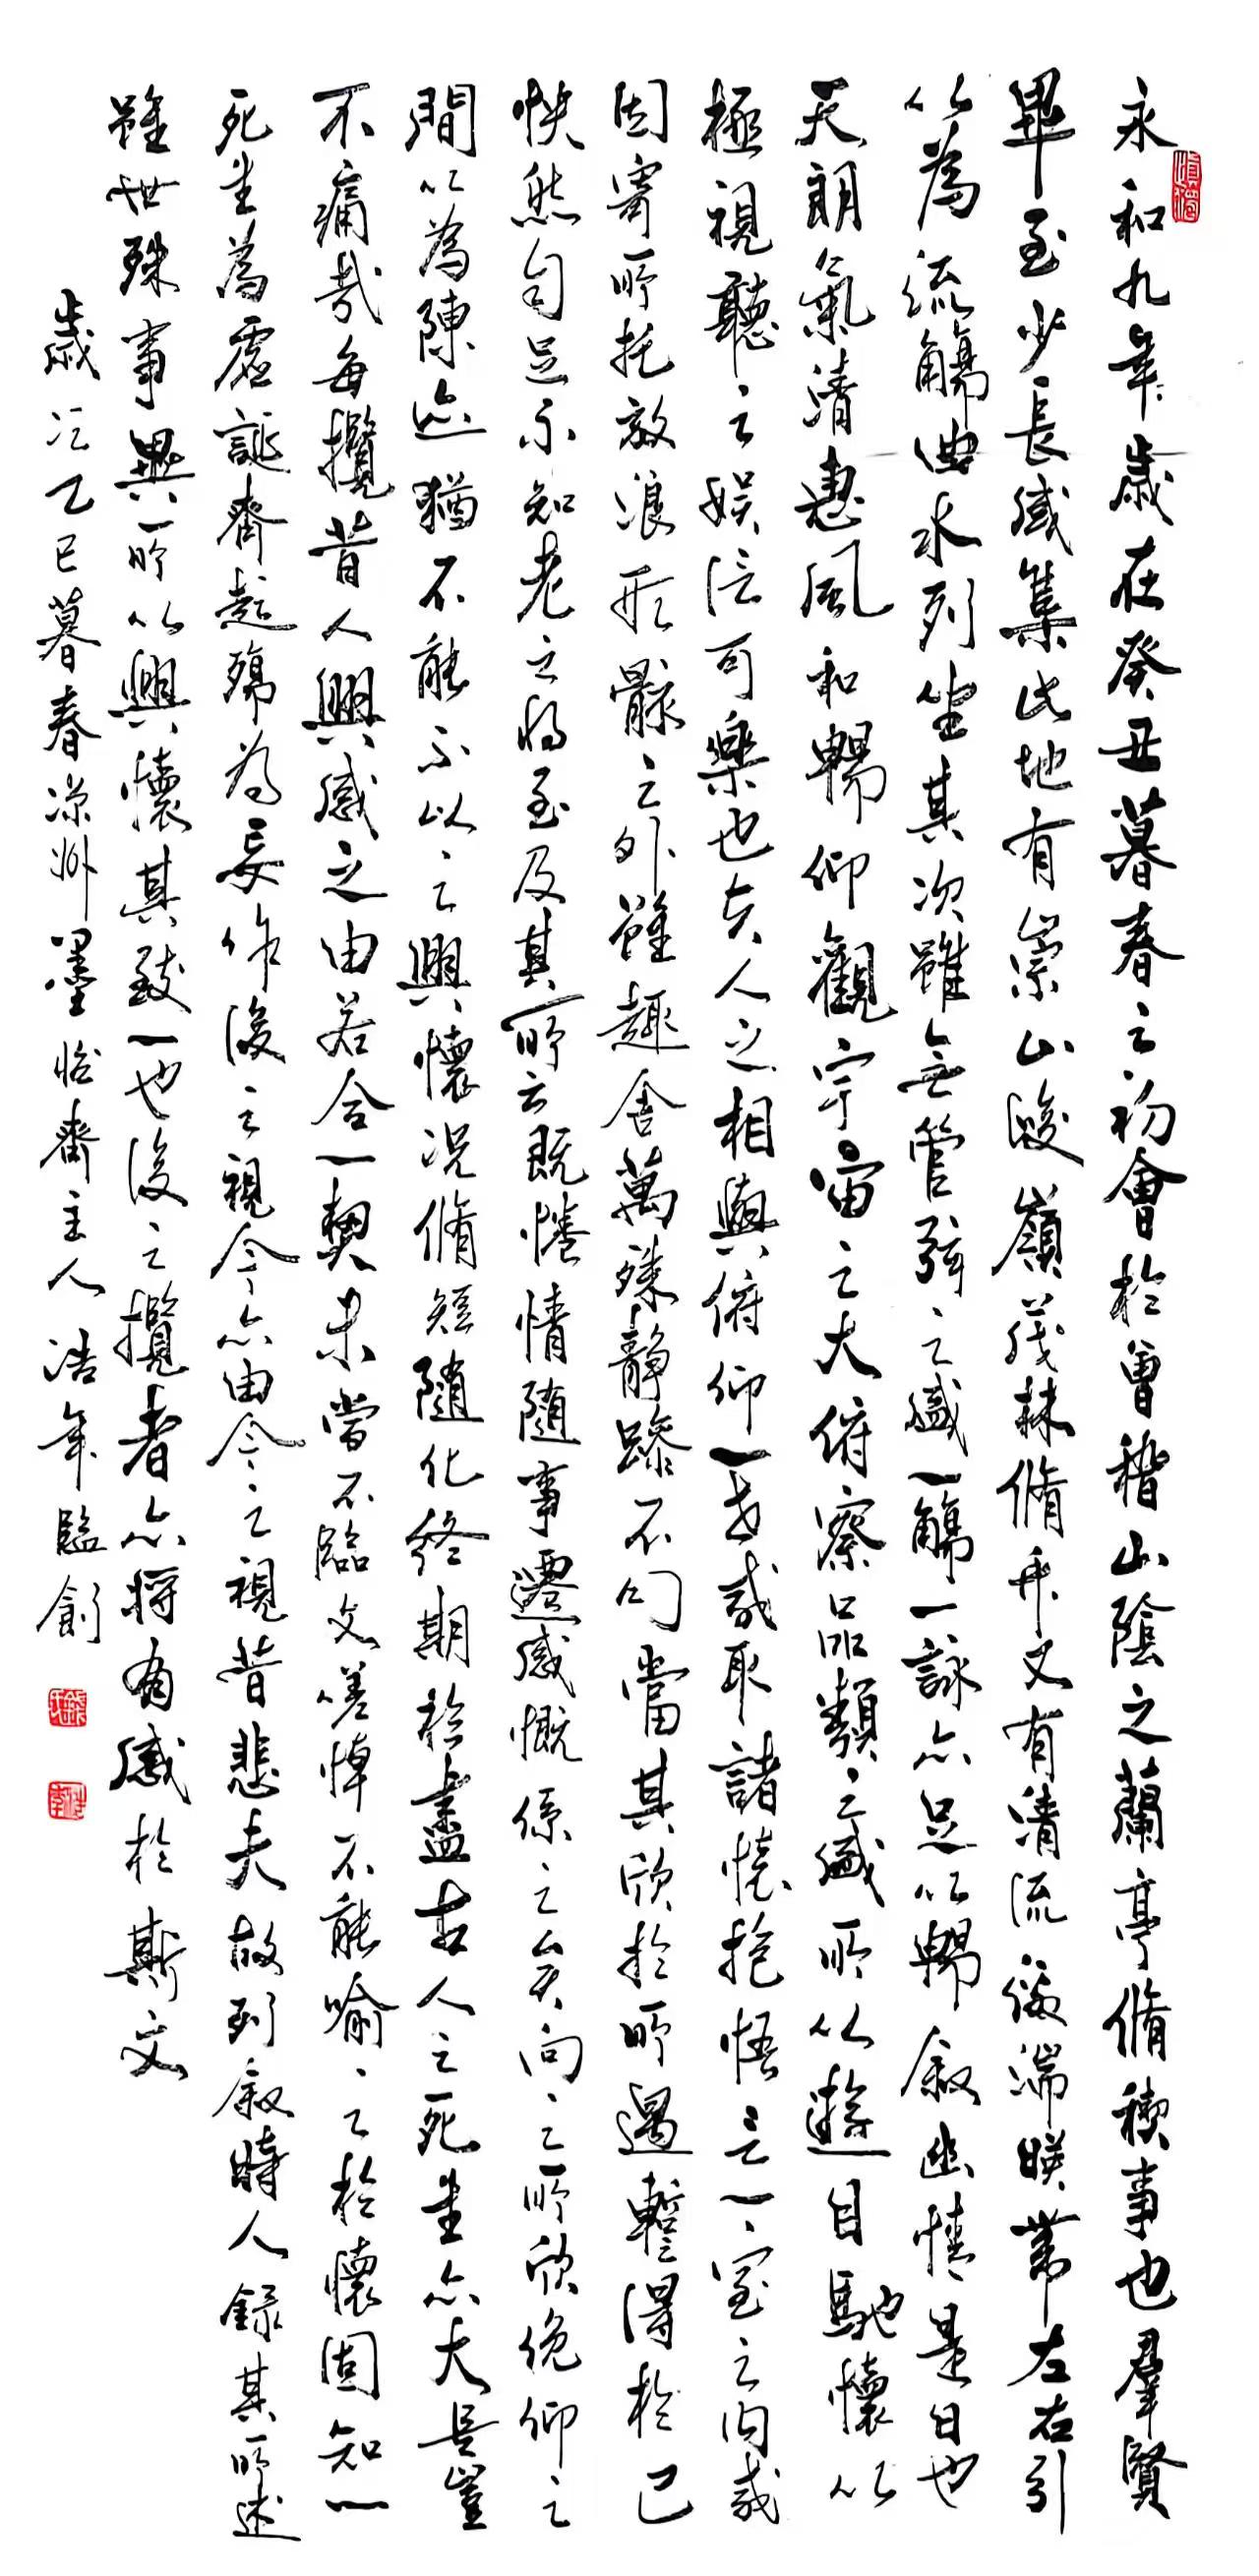 永和九年歲在癸丑暮春之初會於會稽山陰之蘭亭脩禊事也羣賢
畢至少長咸集此地有崇山峻嶺茂林脩竹又有清流激湍暎帶左右引
以為流觴曲水列坐其次雖無管弦之盛一觴一詠亦足以暢叙幽情是日也
天朗氣清惠風和暢仰觀宇宙之大俯察品類之盛所以遊目馳懷以
極視聽之娛信可樂也夫人之相與俯仰一世或取諸懷抱悟言一室之內或
因寄所托放浪形骸之外雖趣舍萬殊靜躁不同當其欣於所遇暫得於己
怏然自足不知老之將至及其所之既惓情隨事遷感慨係之矣向之所欣俛仰之
間以為陳迹猶不能不以之興懷況脩短隨化終期於盡古人云死生亦大矣豈
不痛哉每攬昔人興感之由若合一契未嘗不臨文嗟悼不能喻之於懷固知一
死生為虛誕齊彭殤為妄作後之視今亦由今之視昔悲夫故列叙時人錄其所述
雖世殊事異所以興懷其致一也後之攬者亦將有感於斯文
歲次乙巳暮春涼州墨怡齋主人浩年臨創